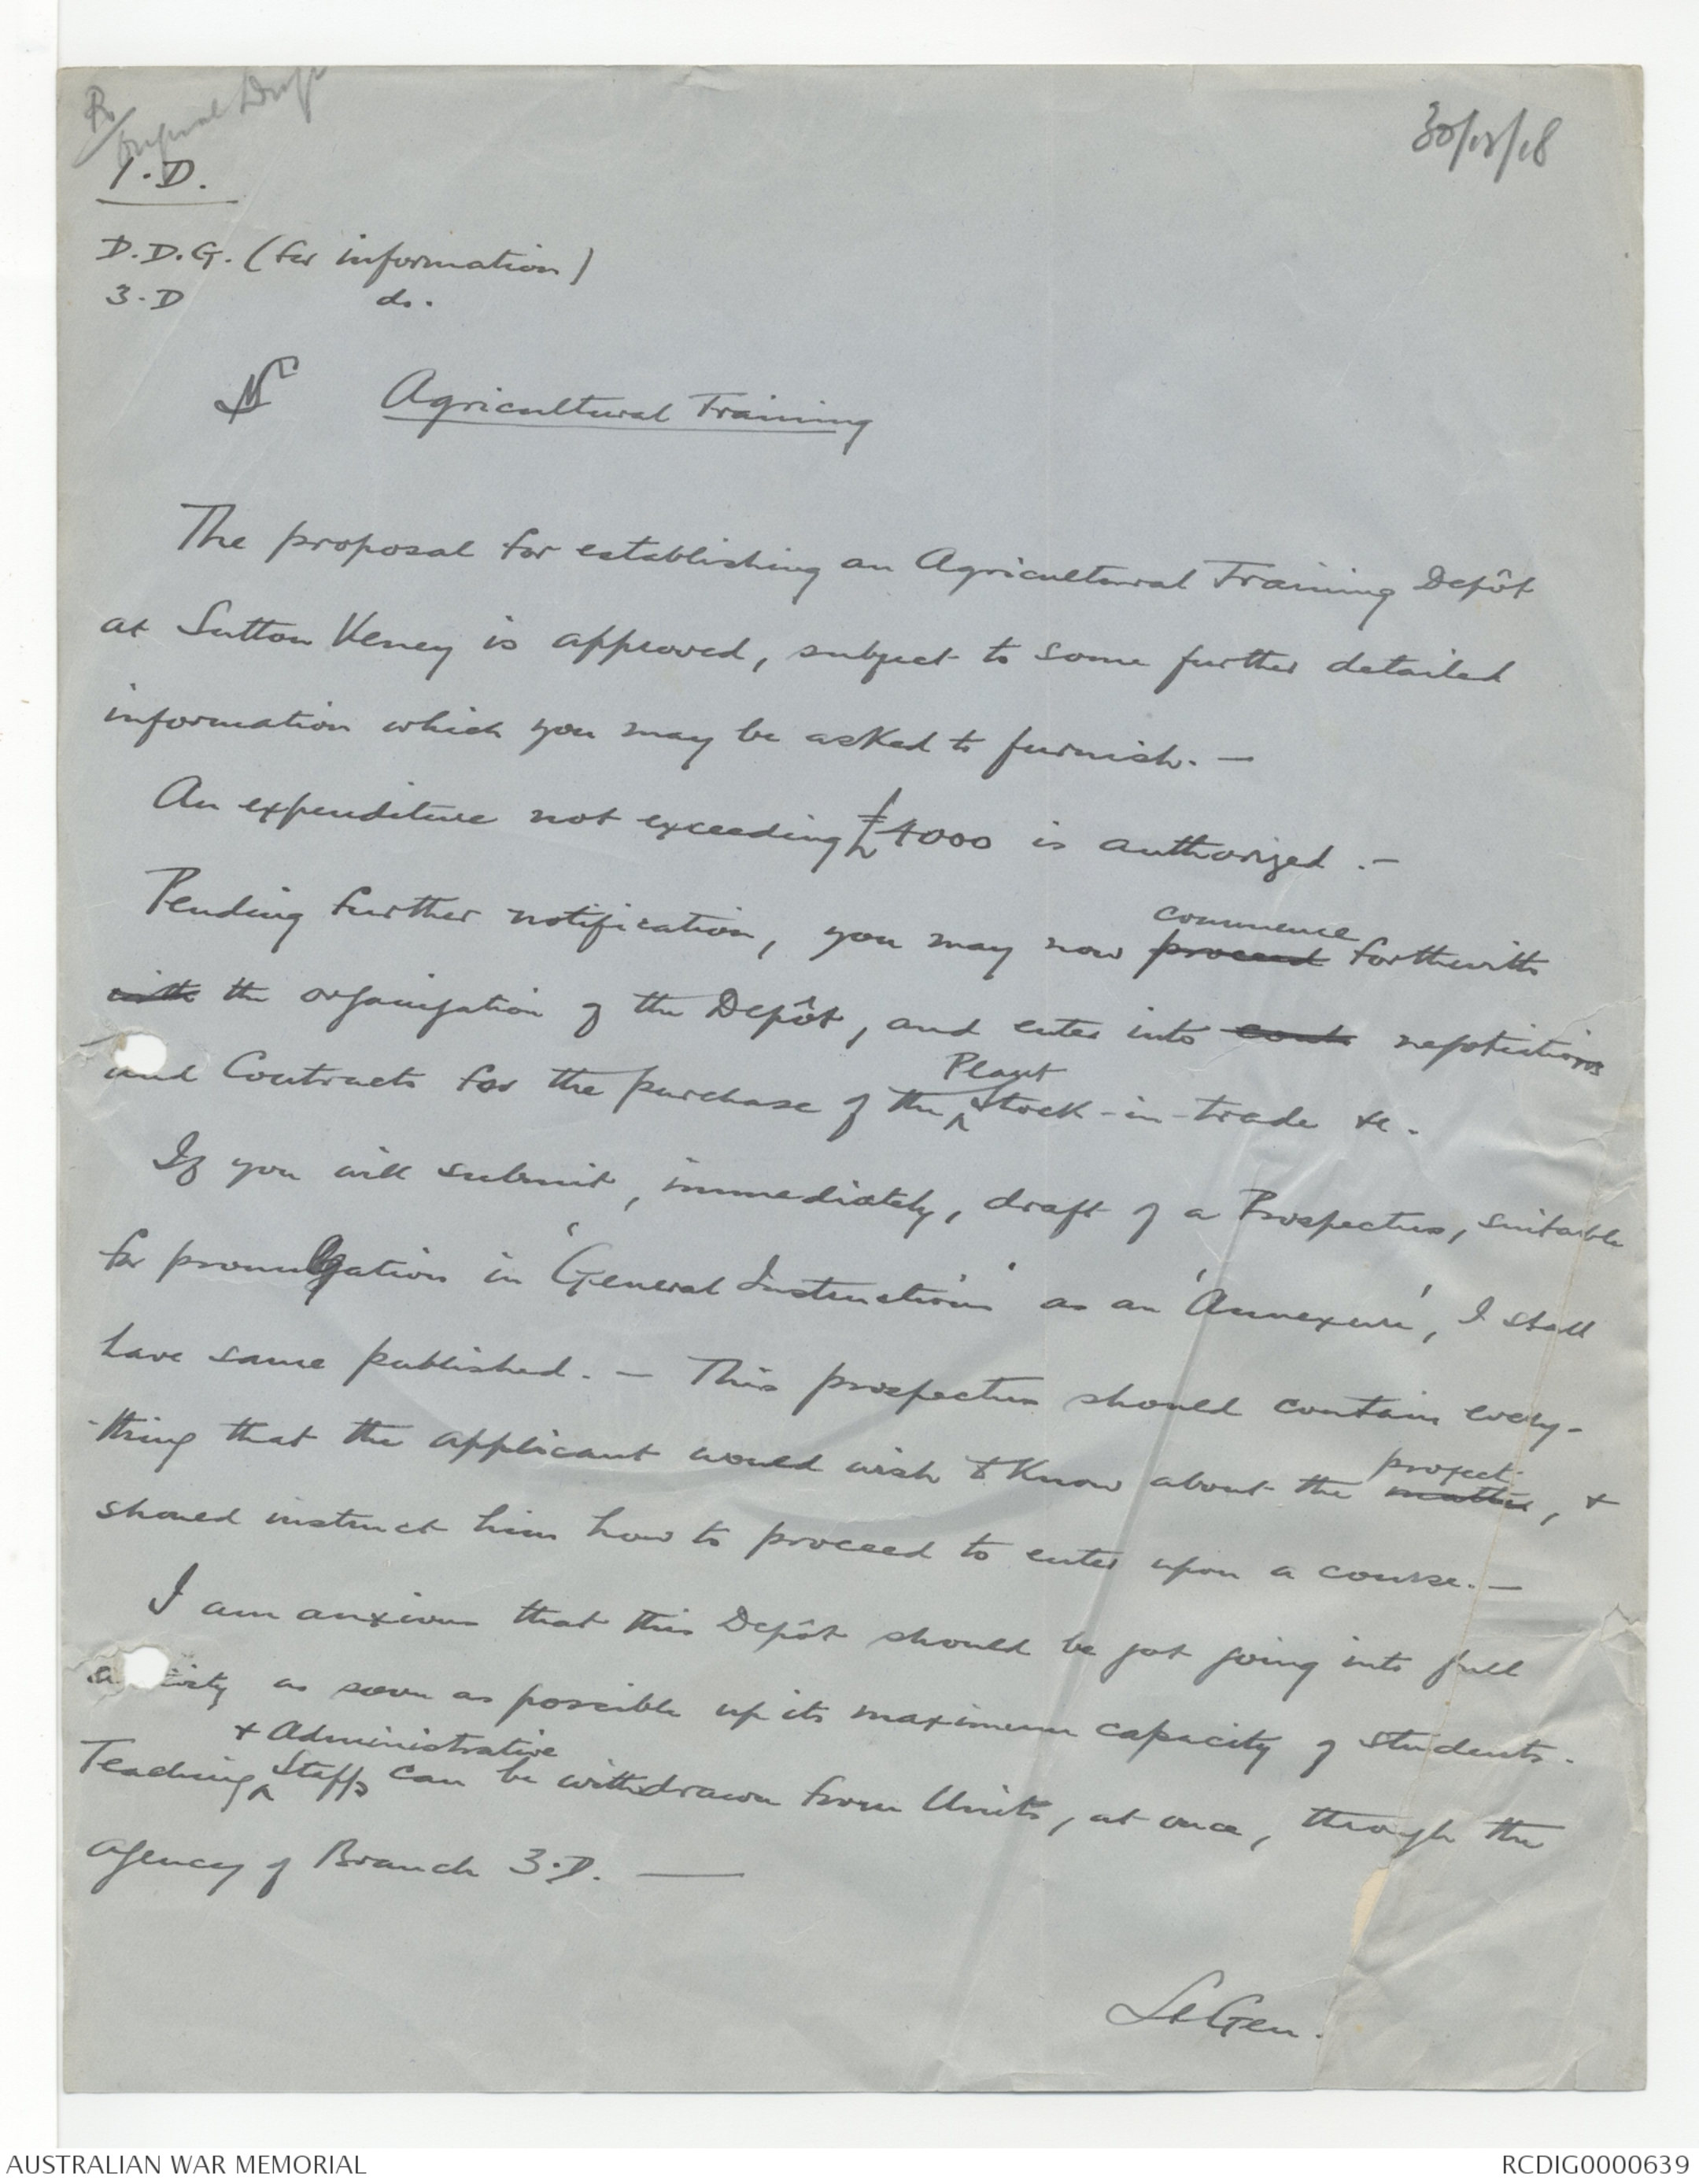 30/12/18
1.D.
D.D.G. (for information)
3.D do.
Agricultural Training
The proposal for establishing an Agricultural Training Depôt
at Sutton Veney is approved, subject to some further detailed
information which you may be asked to furnish. —
An expenditure not exceeding £4000 is authorized. —
commence
Pending further notification, you may now proceed forthwith
with the organization of the Depôt, and enter into negotiations
Plant
and Contracts for the purchase of the stock-in-trade &c.
If you will submit, immediately, draft of a Prospectus, suitable
for promulgation in 'General Instructions' as an 'Annexure', I shall
have same published. — This prospectus should contain every-
-thing that the applicant would wish to know about the matter, +
project
should instruct him how to proceed to enter upon a course. —
I am anxious that this Depôt should be got going into full
as soon as possible up its maximum capacity of students.
+ Administrative
Teaching Staffs can be withdrawn from Units, at once, through the
agency of Branch 3.D. —
Lt Gen.
AUSTRALIAN WAR MEMORIAL
RCDIG0000639